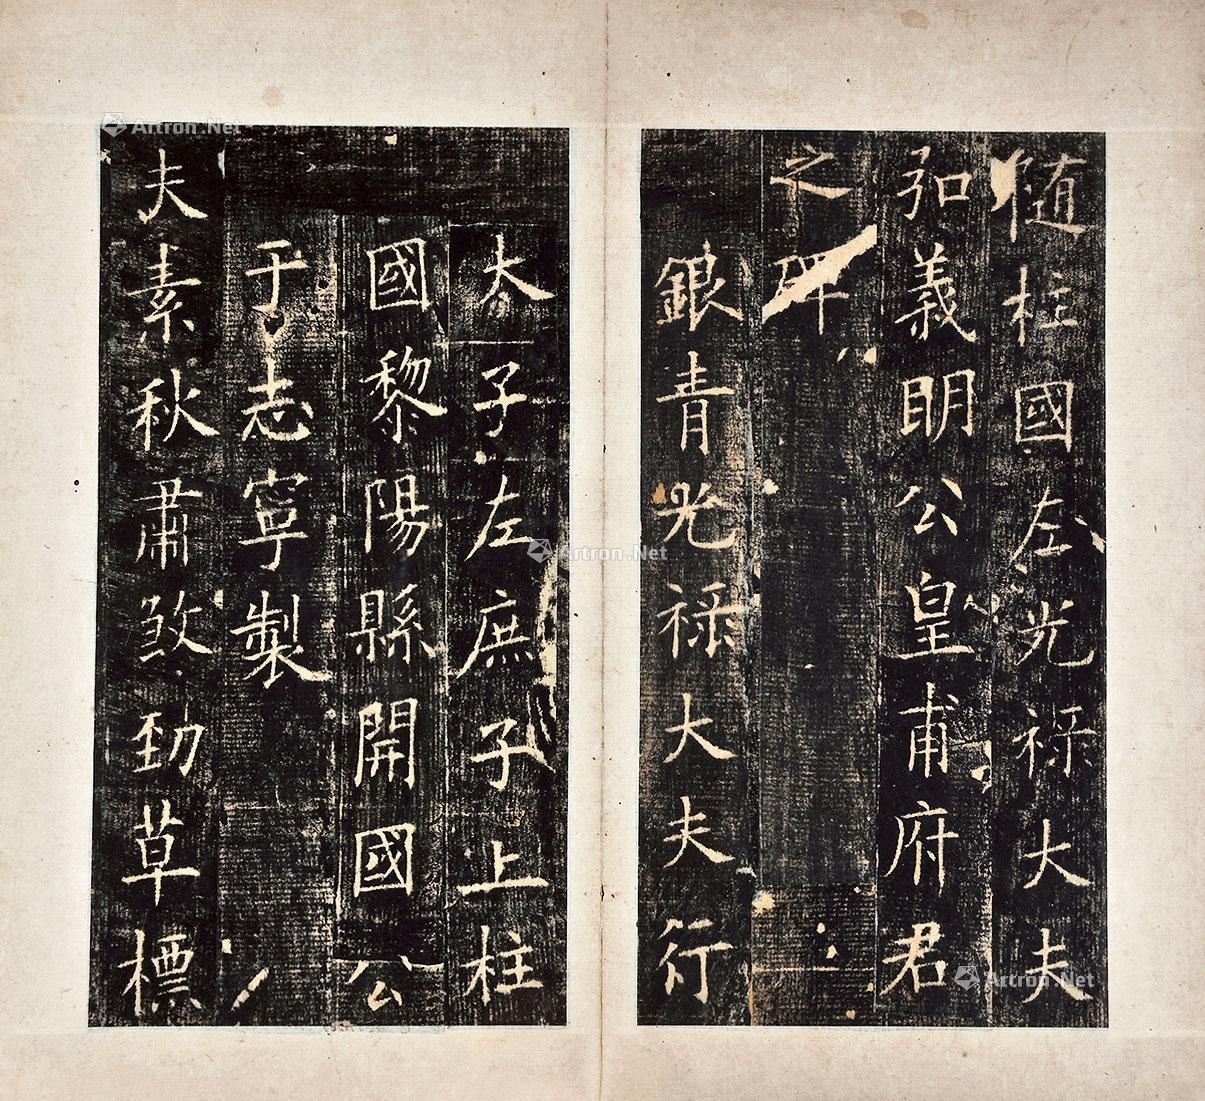 随柱國左光祿大夫
弘義明公皇甫府君
之碑
銀青光祿大夫行
太子左庶子上柱
國黎陽縣開國公
于志寧製
夫素秋肅煞勁草標
Artron.Net
Artron.Net
Artron.Net